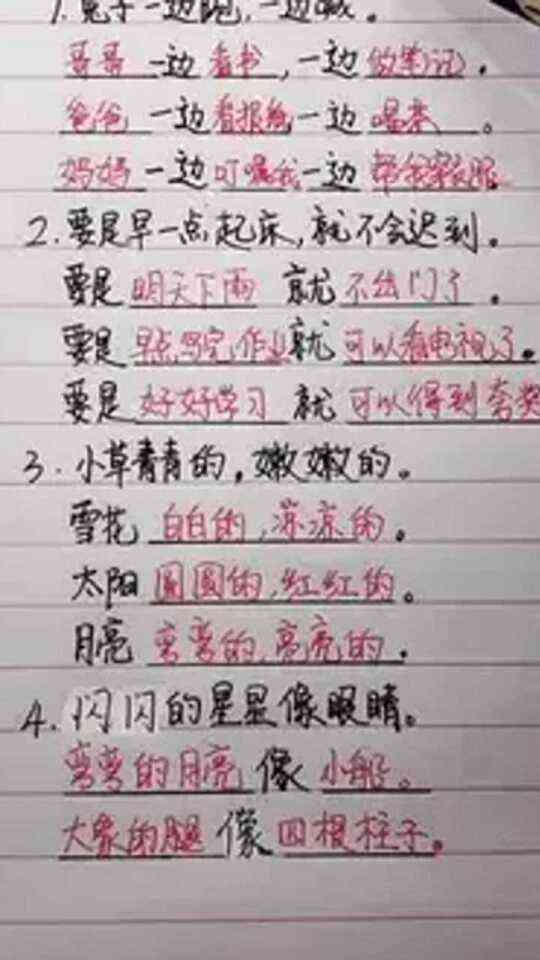 1.兔子一边跑,一边喊。
哥哥一边看书,一边做笔记。
爸爸一边看报纸一边喝茶。
妈妈一边叮嘱我一边帮我穿衣服。
2.要是早一点起床,就不会迟到。
要是明天下雨就不出门了。
要是早点写完作业就可以看电视了。
要是好好学习就可以得到夸奖
3.小草青青的,嫩嫩的。
雪花白白的,凉凉的。
太阳圆圆的,红红的。
月亮弯弯的,亮亮的。
4.闪闪的星星像眼睛。
弯弯的月亮像小船。
大象的腿像四根柱子。